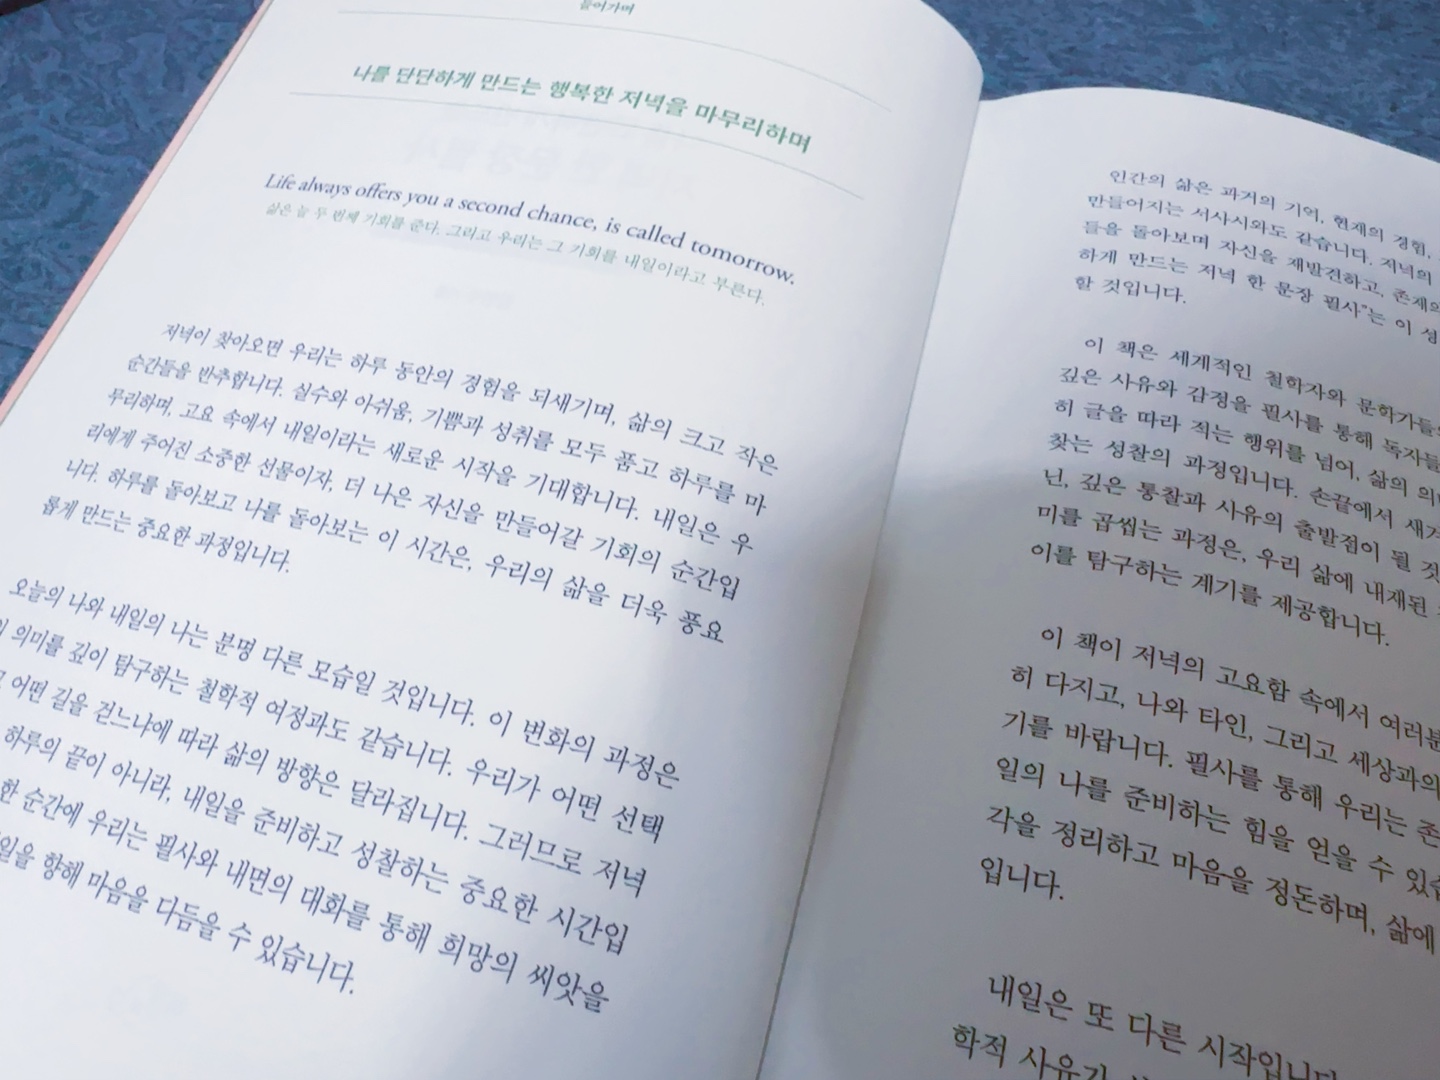 들어가며
나를 단단하게 만드는 행복한 저녁을 마무리하며
Life always offers you a second chance, is called tomorrow.
삶은 늘 두 번째 기회를 준다. 그리고 우리는 그 기회를 내일이라고 부른다.
저녁이 찾아오면 우리는 하루 동안의 경험을 되새기며, 삶의 크고 작은
순간들을 반추합니다. 실수와 아쉬움, 기쁨과 성취를 모두 품고 하루를 마
무리하며, 고요 속에서 내일이라는 새로운 시작을 기대합니다. 내일은 우
리에게 주어진 소중한 선물이자, 더 나은 자신을 만들어갈 기회의 순간입
니다. 하루를 돌아보고 나를 돌아보는 이 시간은, 우리의 삶을 더욱 풍요
롭게 만드는 중요한 과정입니다.
오늘의 나와 내일의 나는 분명 다른 모습일 것입니다. 이 변화의 과정은
의미를 깊이 탐구하는 철학적 여정과도 같습니다. 우리가 어떤 선택
어떤 길을 걷느냐에 따라 삶의 방향은 달라집니다. 그러므로 저녁
하루의 끝이 아니라, 내일을 준비하고 성찰하는 중요한 시간입
한 순간에 우리는 필사와 내면의 대화를 통해 희망의 씨앗을
향해 마음을 다듬을 수 있습니다.
인간의 삶은 과거의 기억, 현재의 경험,
만들어지는 서사시와도 같습니다. 저녁의
들을 돌아보며 자신을 재발견하고, 존재의
하게 만드는 저녁 한 문장 필사"는 이 성
할 것입니다.
이 책은 세계적인 철학자와 문학가들
깊은 사유와 감정을 필사를 통해 독자들
히 글을 따라 적는 행위를 넘어, 삶의 의
찾는 성찰의 과정입니다. 손끝에서 새겨
닌, 깊은 통찰과 사유의 출발점이 될 것
미를 곱씹는 과정은, 우리 삶에 내재된
이를 탐구하는 계기를 제공합니다.
이 책이 저녁의 고요함 속에서 여러분
히 다지고, 나와 타인, 그리고 세상과의
기를 바랍니다. 필사를 통해 우리는 존
일의 나를 준비하는 힘을 얻을 수 있습
각을 정리하고 마음을 정돈하며, 삶에
입니다.
내일은 또 다른 시작입니다
학적 사유가